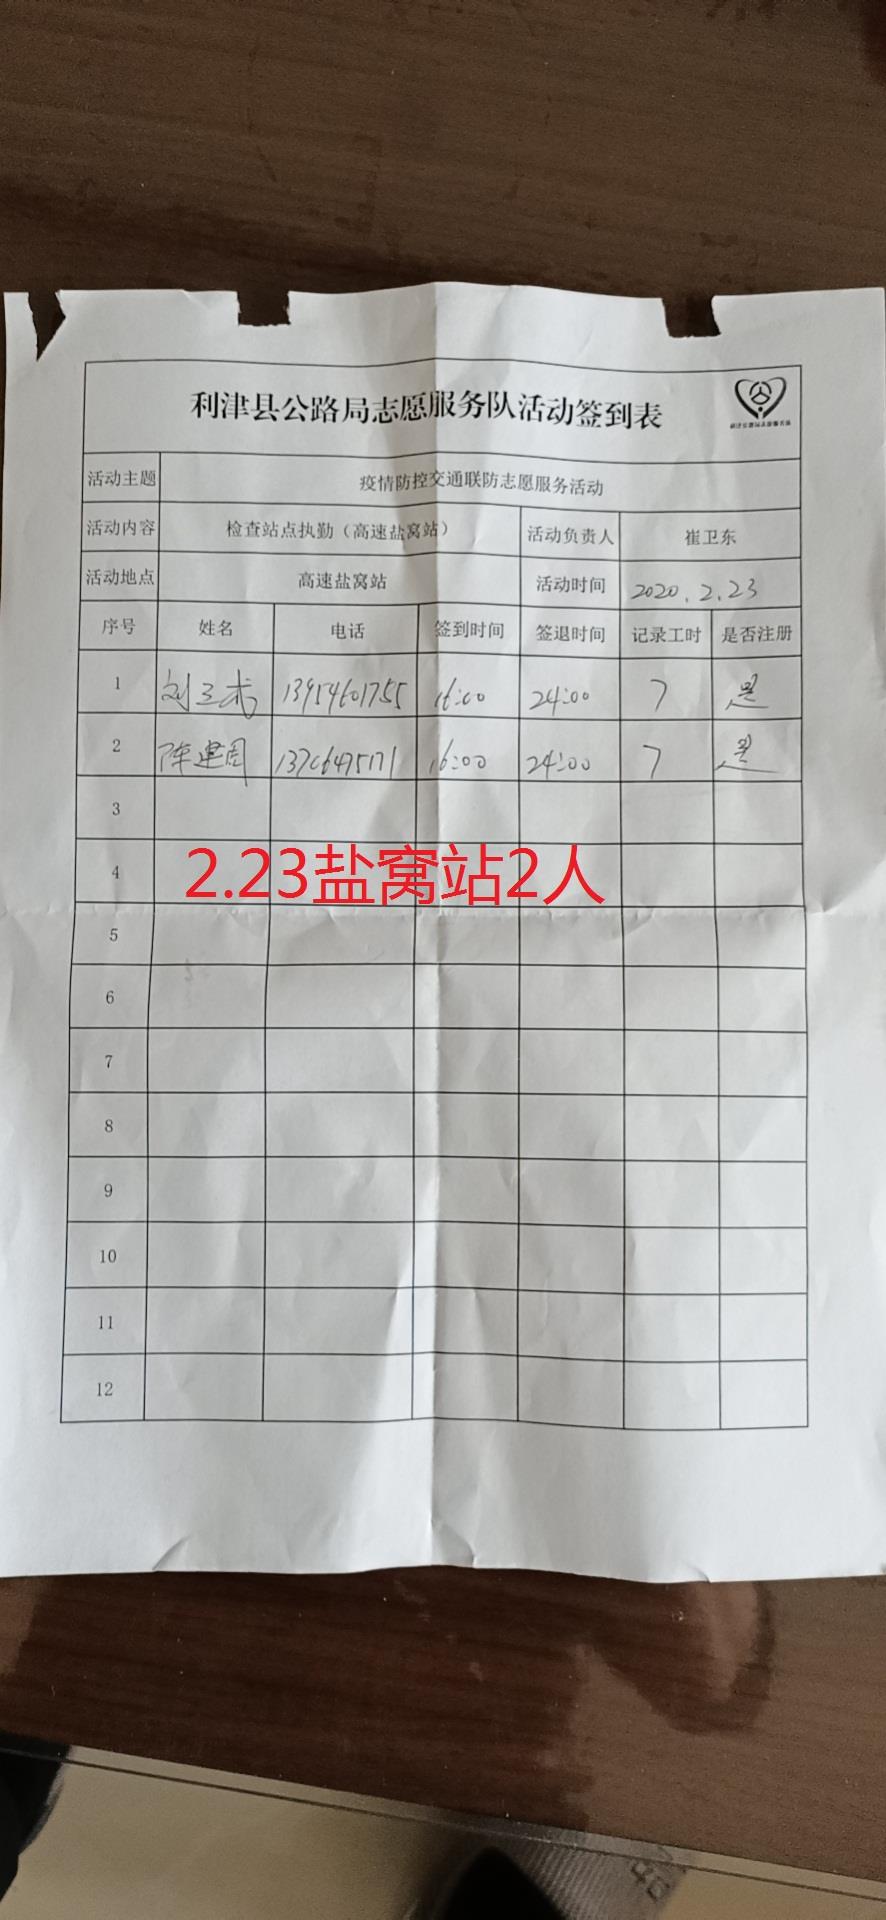 利津县公路局志愿服务队活动签到表
活动主题 疫情防控交通联防志愿服务活动
活动内容 检查站点执勤（高速盐窝站） 活动负责人 崔卫东
活动地点 高速盐窝站 活动时间 2020.2.23
序号 姓名 电话 签到时间 签退时间 记录工时 是否注册
1 刘 13954601755 16:00 24:00 7 是
2 陈建国 13706475171 16:00 24:00 7 是
3
4
2.23盐窝站2人
5
6
7
8
9
10
11
12